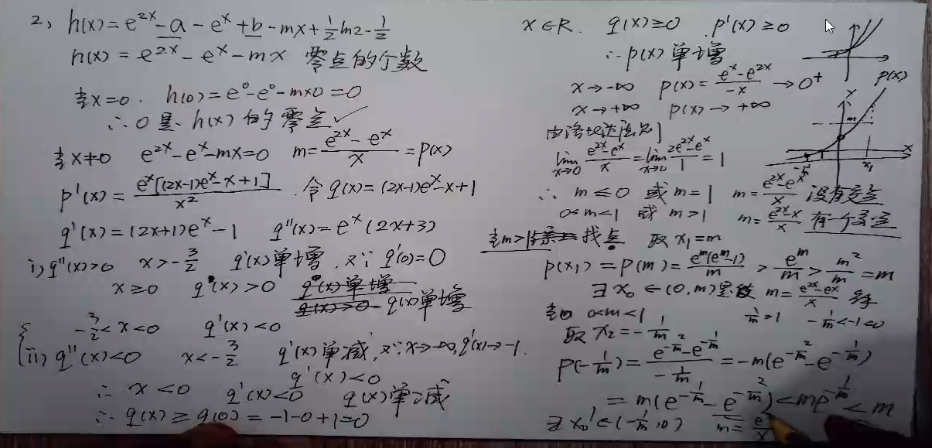 2, h(x)=e^{2x}-a-e^x+b-mx+½m2-½
h(x)=e^{2x}-e^x-mx 零点的个数
当x=0. h(0)=e^0-e^0-m×0=0
∴0是h(x)的零点✓
当x≠0 e^{2x}-e^x-mx=0 m=(e^{2x}-e^x)/x=p(x)
p'(x)=e^x[(2x-1)e^x-x+1]/x² . 令q(x)=(2x-1)e^x-x+1
q'(x)=(2x+1)e^x-1 q''(x)=e^x(2x+3)
i) q''(x)>0 x>-3/2 q'(x)单增. 又∵q'(0)=0
x≥0 q'(x)>0 q(x)单增
-3/2<x<0 q'(x)<0
(ii) q''(x)<0 x<-3/2 q'(x)单减, 又∵x→-∞, q'(x)→-1.
q'(x)<0
∴ x<0 q'(x)<0 q(x)单减
∴q(x)≥q(0)=-1-0+1=0
x∈R. q(x)≥0 p'(x)≥0
∴p(x)单增
x→-∞ p(x)=(e^x-e^{2x})/-x→0^+
x→+∞ p(x)→+∞
由洛必达法则
lim_{x→0} (e^{2x}-e^x)/x=lim_{x→0} (2e^{2x}-e^x)/1=1
∴ m≤0 或m=1 m=(e^{2x}-e^x)/x 没有交点
0<m<1 或m>1 m=(e^{2x}-e^x)/x 有一个交点
当m>1 找点 取x_1=m
p(x_1)=p(m)=e^m(e^m-1)/m>e^m/m>m²/m=m
∃x_0∈(0,m) m=(e^{2x}-e^x)/x
当0<m<1 1/m>1 -1/m<-1<0
取x_2=-1/m
p(-1/m)=(e^{-2/m}-e^{-1/m})/(-1/m)=-m(e^{-2/m}-e^{-1/m})
=m(e^{-1/m}-e^{-2/m})<me^{-1/m}<m
∃x_0'∈(-1/m,0) m=e/x
p(x)
y
m
x
x_1